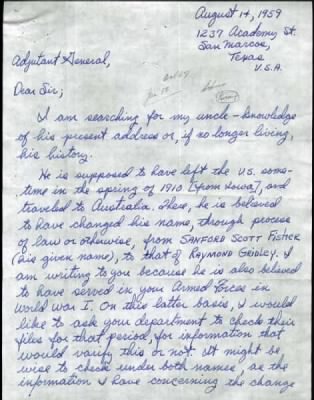 August 14, 1959
1237 Academy St.
San Marcos,
Texas
U.S.A.
Adjutant General,
Dear Sir;
I am searching for my uncle - knowledge
of his present address or, if no longer living,
his history.
He is supposed to have left the U.S. some-
time in the spring of 1910 [from Iowa], and
traveled to Australia. There, he is believed
to have changed his name, through process
of law or otherwise, from SANFORD SCOTT FISHER
(his given name), to that of RAYMOND GRIDLEY. I
am writing to you because he is also believed
to have served in your Armed Forces in
World War I. On this latter basis, I would
like to ask your department to check their
files for that period, for information that
would varify this or not. It might be
wise to check under both names, as the
information I have concerning the change